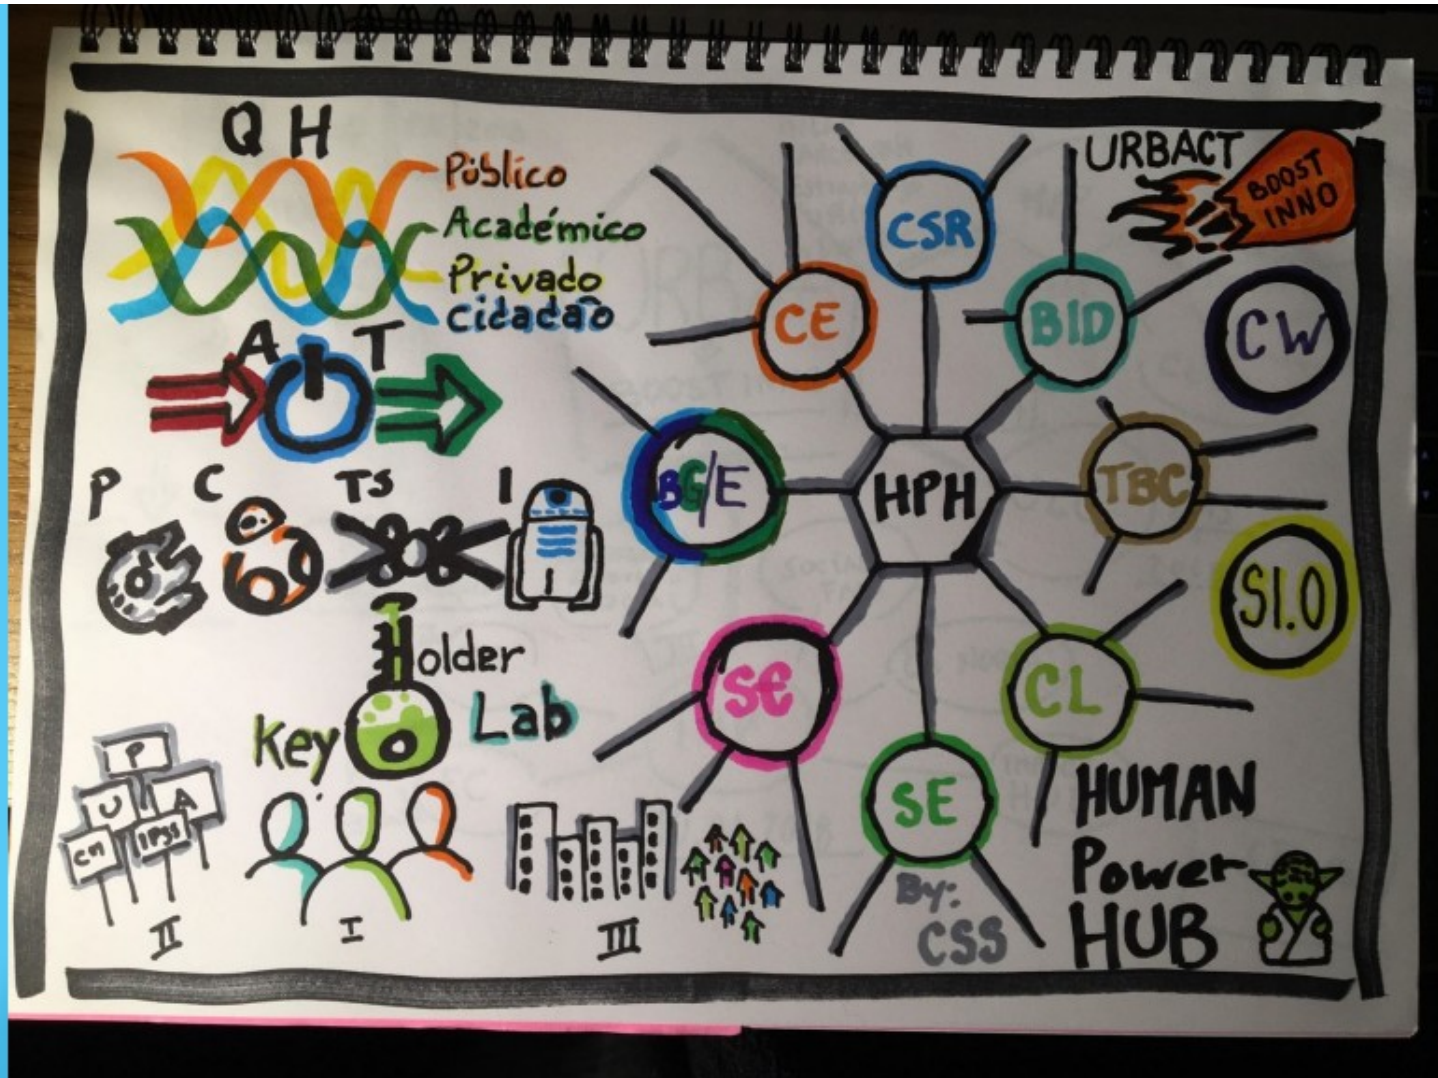 Q H
Público
Académico
Privado
Cidadão
A T
P C TS I
Holder
Key
Lab
P
U A
CM IPSS
II
I
III
URBACT
BOOST
INNO
CSR
CE
BID
CW
BG/E
HPH
TBC
S1.0
S€
CL
SE
By:
CSS
HUMAN
Power
HUB